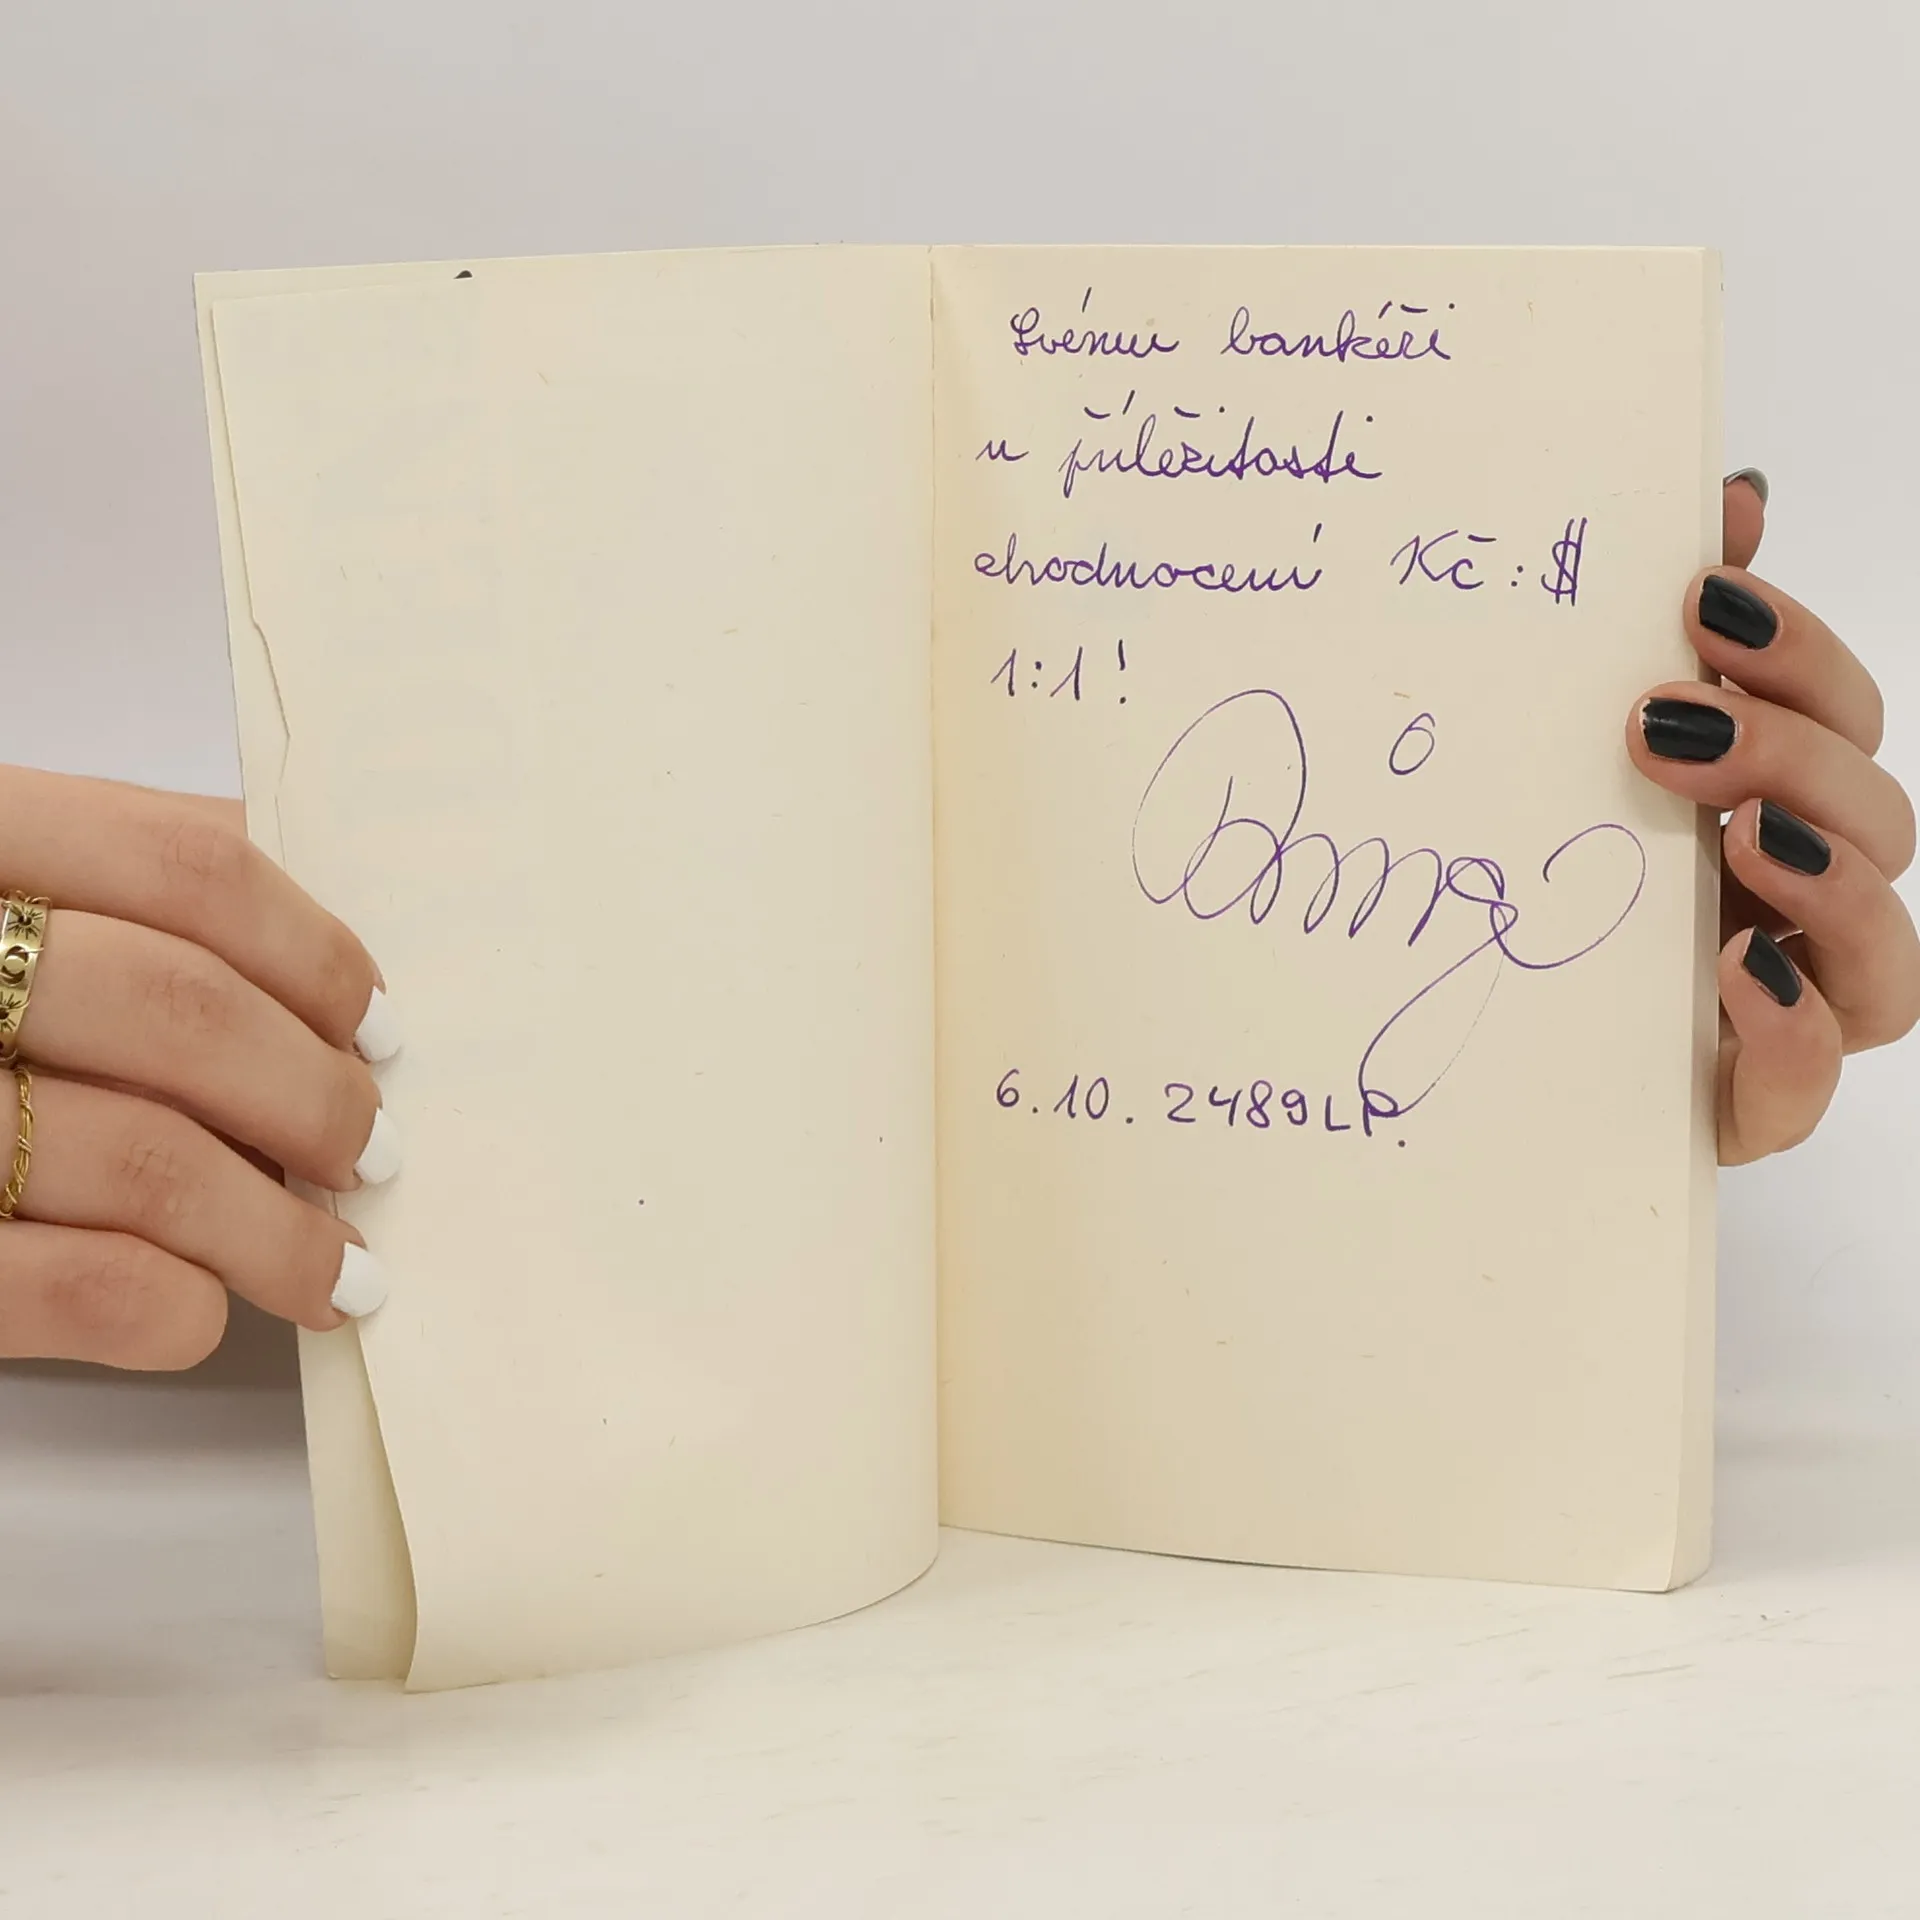 Svému bankéři
u příležitosti
zhodnocení Kč : $
1:1!
6.10. 2489 LP.